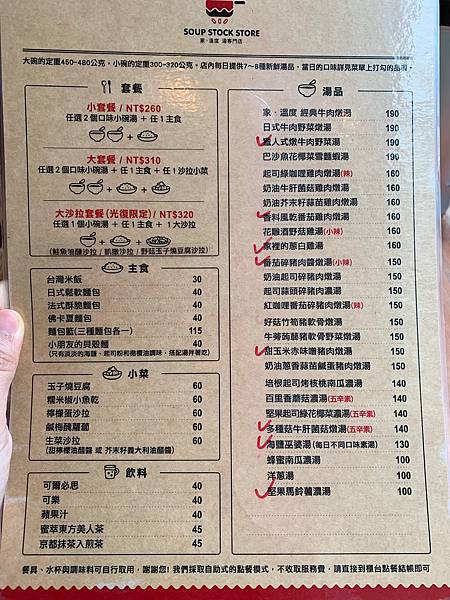 SOUP STOCK STORE
家‧溫度 湯專門店
大碗的定重450-480公克，小碗的定重300-320公克。店內每日提供7～8種新鮮湯品，當日的口味詳見菜單上打勾的品項。
套餐
小套餐 / NT$260
任選 2 個口味小碗湯 ＋ 任 1 主食
大套餐 / NT$310
任選 2 個口味小碗湯 ＋ 任 1 主食 ＋ 任 1 沙拉小菜
大沙拉套餐(光復限定) / NT$320
任選 1 個小碗湯 ＋ 任 1 主食 ＋ 1 大沙拉
(鮭魚油醋沙拉 / 凱撒沙拉 / 野菇玉子燒豆腐沙拉)
主食
台灣米飯 30
日式鬆軟麵包 40
法式酥脆麵包 40
佛卡夏麵包 40
麵包籃(三種麵包各一) 115
小朋友的貝殼麵 40
(只有淡淡的海鹽、起司粉和橄欖油調味，搭配湯拌著吃)
小菜
玉子燒豆腐 60
糯米椒小魚乾 60
檸檬蛋沙拉 60
鹹梅醃蘿蔔 60
生菜沙拉 60
(甜檸檬油醋醬 或 芥末籽義大利油醋醬)
飲料
可爾必思 40
可樂 40
蘋果汁 40
蜜萃東方美人茶 45
京都抹茶入煎茶 45
湯品
家‧溫度 經典牛肉燉湯 190
日式牛肉野菜燉湯 190
獵人式燉牛肉野菜湯 190
巴沙魚花椰菜雪麵蝦湯 190
起司綠咖哩雞肉燉湯(辣) 160
奶油牛肝菌菇雞肉燉湯 160
奶油芥末籽蘑菇雞肉燉湯 160
香料風乾番茄雞肉燉湯 160
花雕酒野菇雞湯(小辣) 160
家裡的蔥白雞湯 160
番茄碎豬肉醬燉湯(小辣) 150
奶油起司碎豬肉燉湯 150
起司蒜頭碎豬肉濃湯 150
紅咖哩番茄碎豬肉燉湯(辣) 150
好菇竹筍豬軟骨燉湯 150
牛蒡蒟蒻豬軟骨野菜燉湯 150
甜玉米赤味噌豬肉燉湯 150
奶油蔥香蒜苗鹹蛋豬肉燉湯 150
培根起司烤核桃南瓜濃湯 140
百里香蘑菇濃湯(五辛素) 140
堅果起司綠花椰菜濃湯(五辛素) 140
多種菇牛肝菌菇燉湯(五辛素) 140
海鹽巫婆湯(每日不同口味素湯) 130
蜂蜜南瓜濃湯 100
洋蔥湯 100
堅果馬鈴薯濃湯 100
餐具、水杯與調味料可自行取用，謝謝您! 我們採取自助式的點餐模式，不收取服務費，請直接到櫃台點餐結帳即可